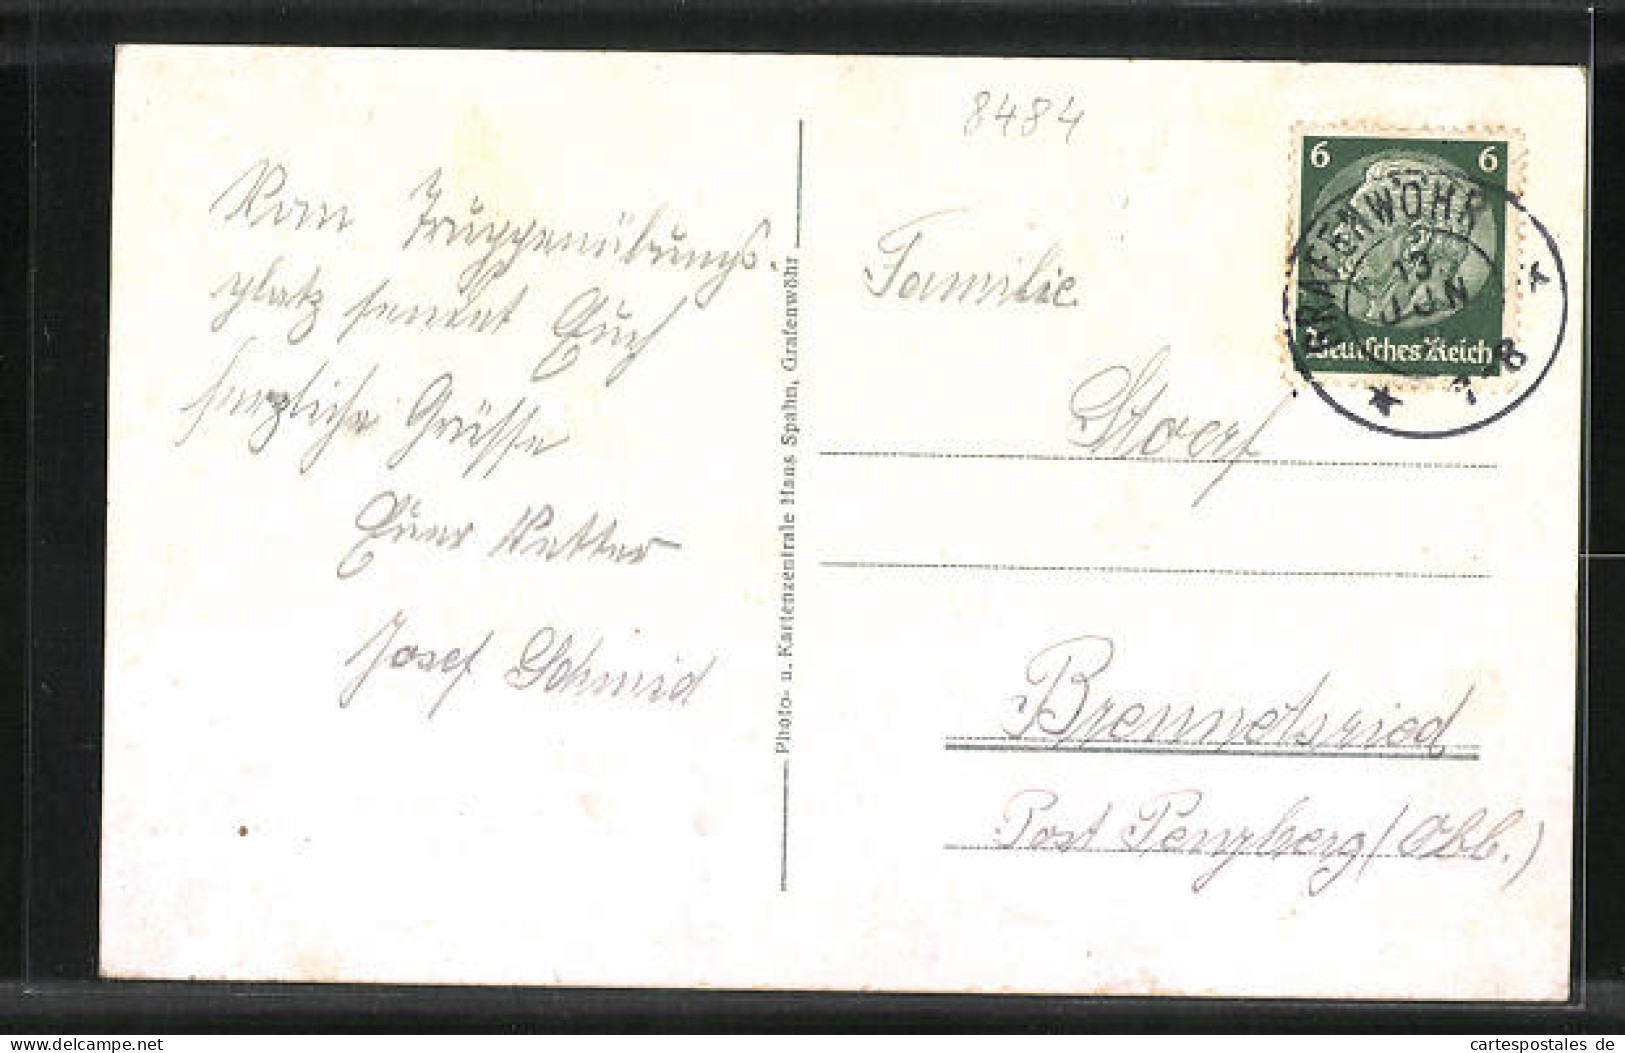 8484
6 6
Deutsches Reich
GRAFENWÖHR
13
JUN
7-8
Vom Truppenübungs-
platz sendet Euch
herzliche Grüsse
Euer Vetter
Josef Schmid
Photo- u. Kartenzentrale Hans Spahn, Grafenwöhr
Familie
Brennetsried
Post Penzberg (Obb.)
delcampe.net
cartespostales de